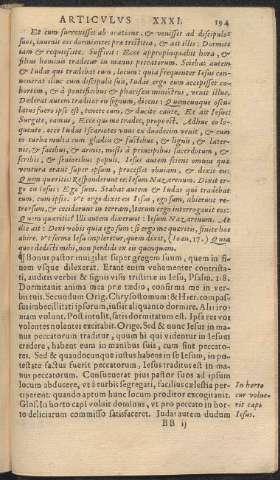 ARTICVLVS XXXI. 194
Et cum surrexisset ab oratione, & venisset ad discipulos
suos, inuenit eos dormientes præ tristitia, & ait illis: Dormite
iam & requiescite. Sufficit: Ecce appropinquabit hora, &
filius hominis tradetur in manus peccatorum. Sciebat autem
& Iudas qui tradebat eum, locum: quia frequenter Iesus con-
uenerat illuc cum discipulis suis. Iudas ergo cum accepisset co-
hortem, & à pontificibus & pharisæis ministros, venit illuc.
Dederat autem traditor eis signum, dicens: Quemcunque oscu-
latus fuero ipse est, tenete eum, & ducite caute. Et ait Iesus:
Surgite, eamus, Ecce qui me tradet, prope est. Adhuc eo lo-
quente, ecce Iudas Iscariotes vnus ex duodecim venit, & cum
eo turba multa cum gladijs & fustibus, & lignis, & later-
nis, & facibus, & armis, missi à principibus sacerdotum, &
scribis, & senioribus populi. Iesus autem sciens omnia quæ
ventura erant super ipsum, processit obuiam, & dicit eis:
Quem quæritis? Responderunt ei: Iesum Nazarenum. Dicit er-
go eis Iesus: Ego sum. Stabat autem & Iudas qui tradebat
eum, cum ipsis. Vt ergo dixit eis Iesus, ego sum, abierunt re-
trorsum, & ceciderunt in terram, Iterum ergo interrogauit eos:
Quem quæritis? Illi autem dixerunt: Iesum Nazarenum. At
ille ait: Dixi vobis quia ego sum: si ergo me quæritis, sinite hos
abire. Vt sermo Iesu impleretur, quem dixit, (Ioan. 17.) Quia
quos dedisti mihi, non perdidi ex eis quenquam.
¶ Bonus pastor inuigilat super gregem suum, quem in fi-
nem vsque dilexerat. Erant enim vehementer contrista-
ti, audita verbis & signis visis tristitia in Iesu, Psalm. 118.
Dormitauit anima mea præ tædio, confirma me in ver-
bis tuis. Secundum Orig. Chrysostomum: & Hier. compas-
sus imbecillitati ipsorum, iussit aliquanto dormire. Alsi iro-
niam volunt. Post intulit, satis dormitatum est. Ipsa res vos
volentes nolentes excitabit. Orige. Sed & nunc Iesus in ma-
nus peccatorum traditur, quum hi qui videntur in Iesum
credere, habent eum in manibus suis, cum sint peccato-
res. Sed & quandocunque iustus habens in se Iesum, in po-
testate factus fuerit peccatorum, Iesus traditus est in ma-
nus peccatorum. Consueuerat pius pastor suos ad ipsum
locum abducere, vt à turbis segregati, facilius cælestia per-
ciperent: quando aptum hunc locum proditor excogitauit.
Glos. In horto capi voluit dominus, vt pro peccato in hor-
to deliciarum commisso satisfaceret. Iudas autem dudum
In horto
cur volue-
rit capi
Iesus.
BB ij